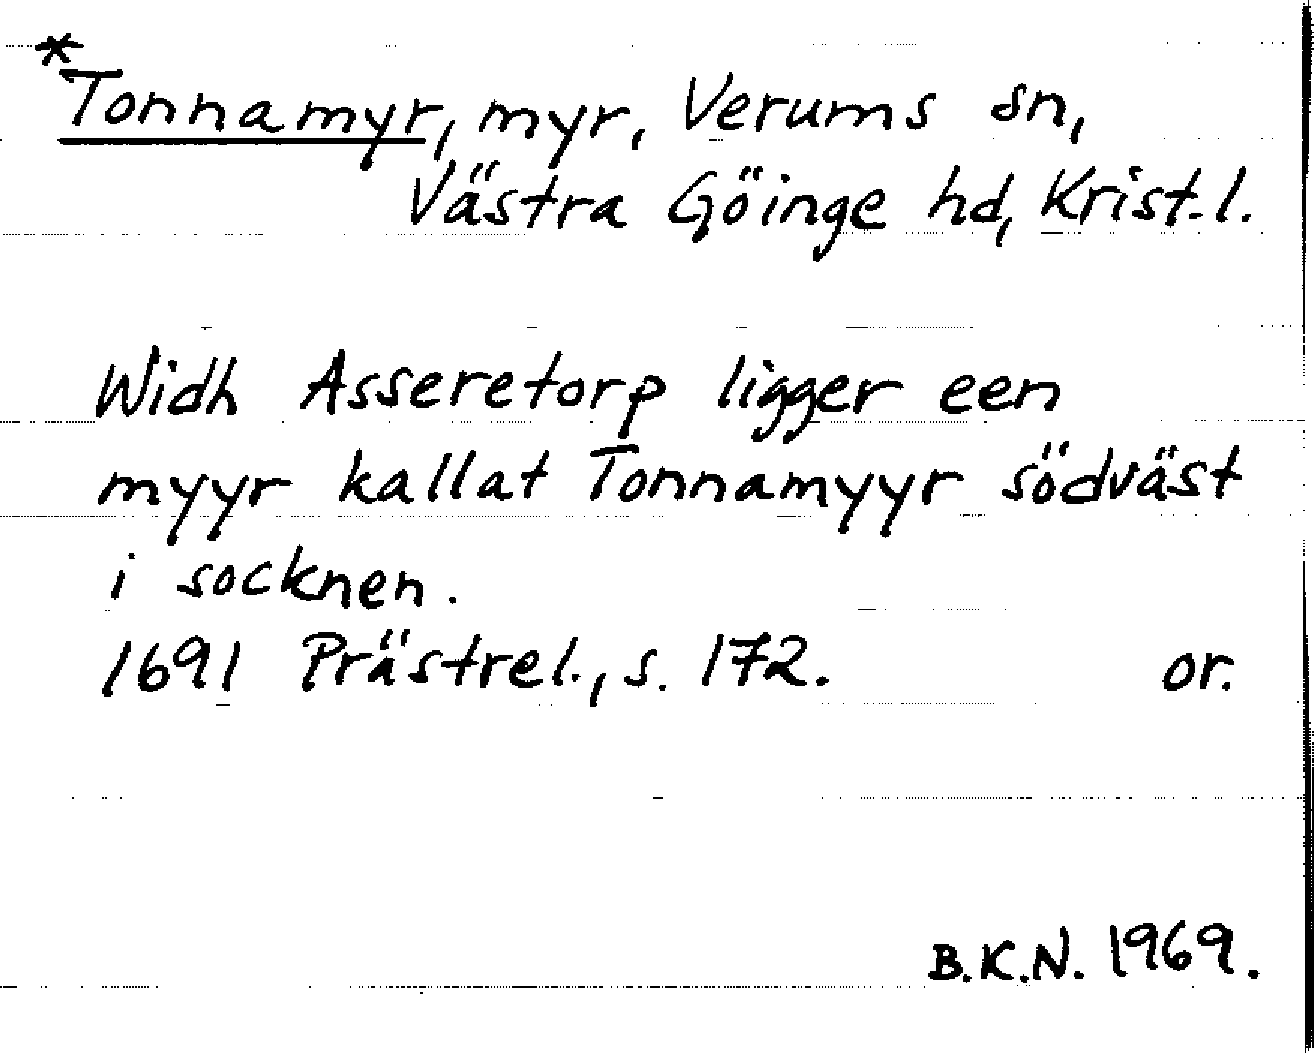 *Tonnamyr, myr, Verums sn,
Västra Göinge hd, Krist.l.
Widh Asseretorp ligger een
myyr kallat Tonnamyyr södväst
i socknen.
1691 Prästrel., s. 172. or.
B.K.N. 1969.